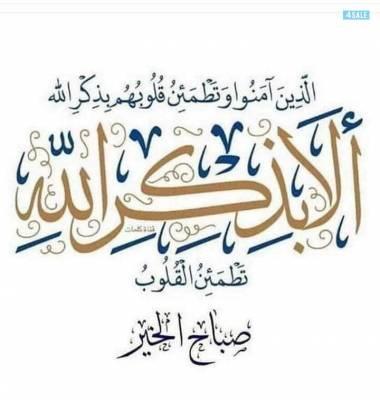 4SALE
الَّذِينَ آمَنُوا وَتَطْمَئِنُّ قُلُوبُهُم بِذِكْرِ الله
ألا بذكر الله
قناة كلمات
تَطْمَئِنُّ الْقُلُوبُ
صباح الخير